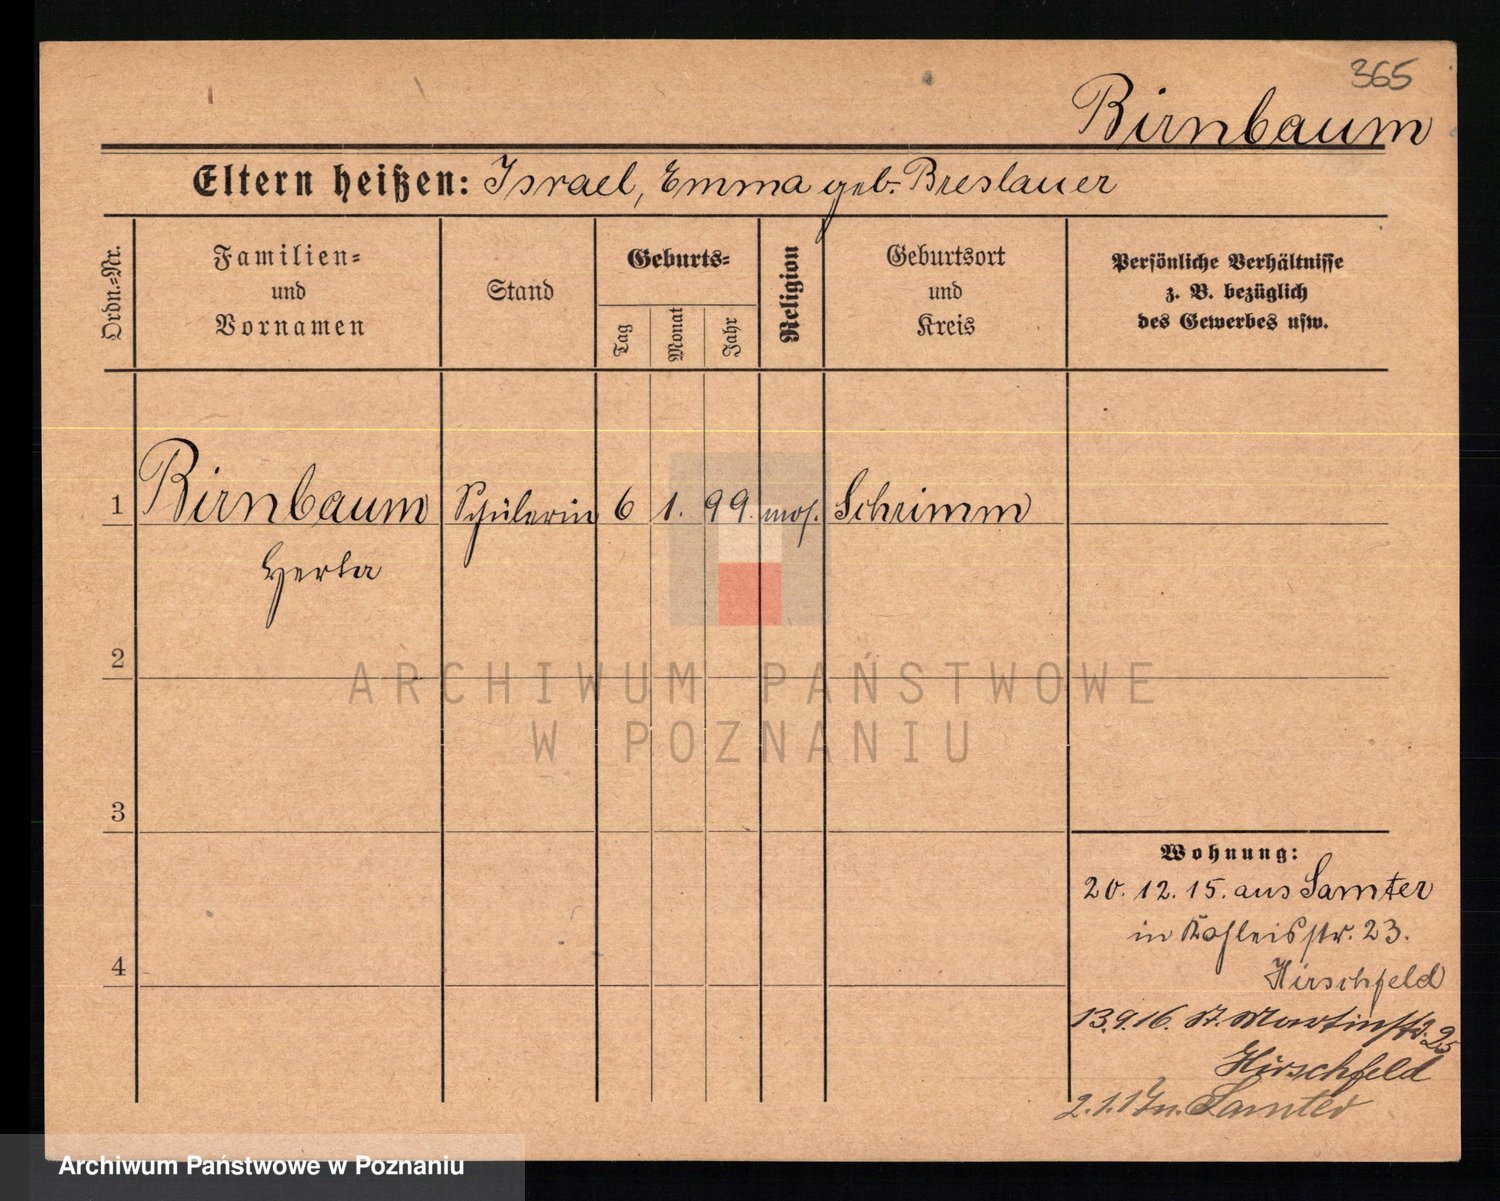 365
Birnbaum
Eltern heißen: Israel, Emma geb. Breslauer
Ordn.=Nr.
Familien=
und
Vornamen
Stand
Geburts=
Tag
Monat
Jahr
Religion
Geburtsort
und
Kreis
Persönliche Verhältnisse
z. B. bezüglich
des Gewerbes usw.
1 Birnbaum Schülerin 6 1. 99. mos. Schrimm
Herta
2
ARCHIWUM PAŃSTWOWE
W POZNANIU
3
Wohnung:
20. 12. 15. aus Samter
in 23.
4
Hirschfeld
13.9.16. St. Martinstr. 25
Hirschfeld
2.1.17 n. Samter
Archiwum Państwowe w Poznaniu